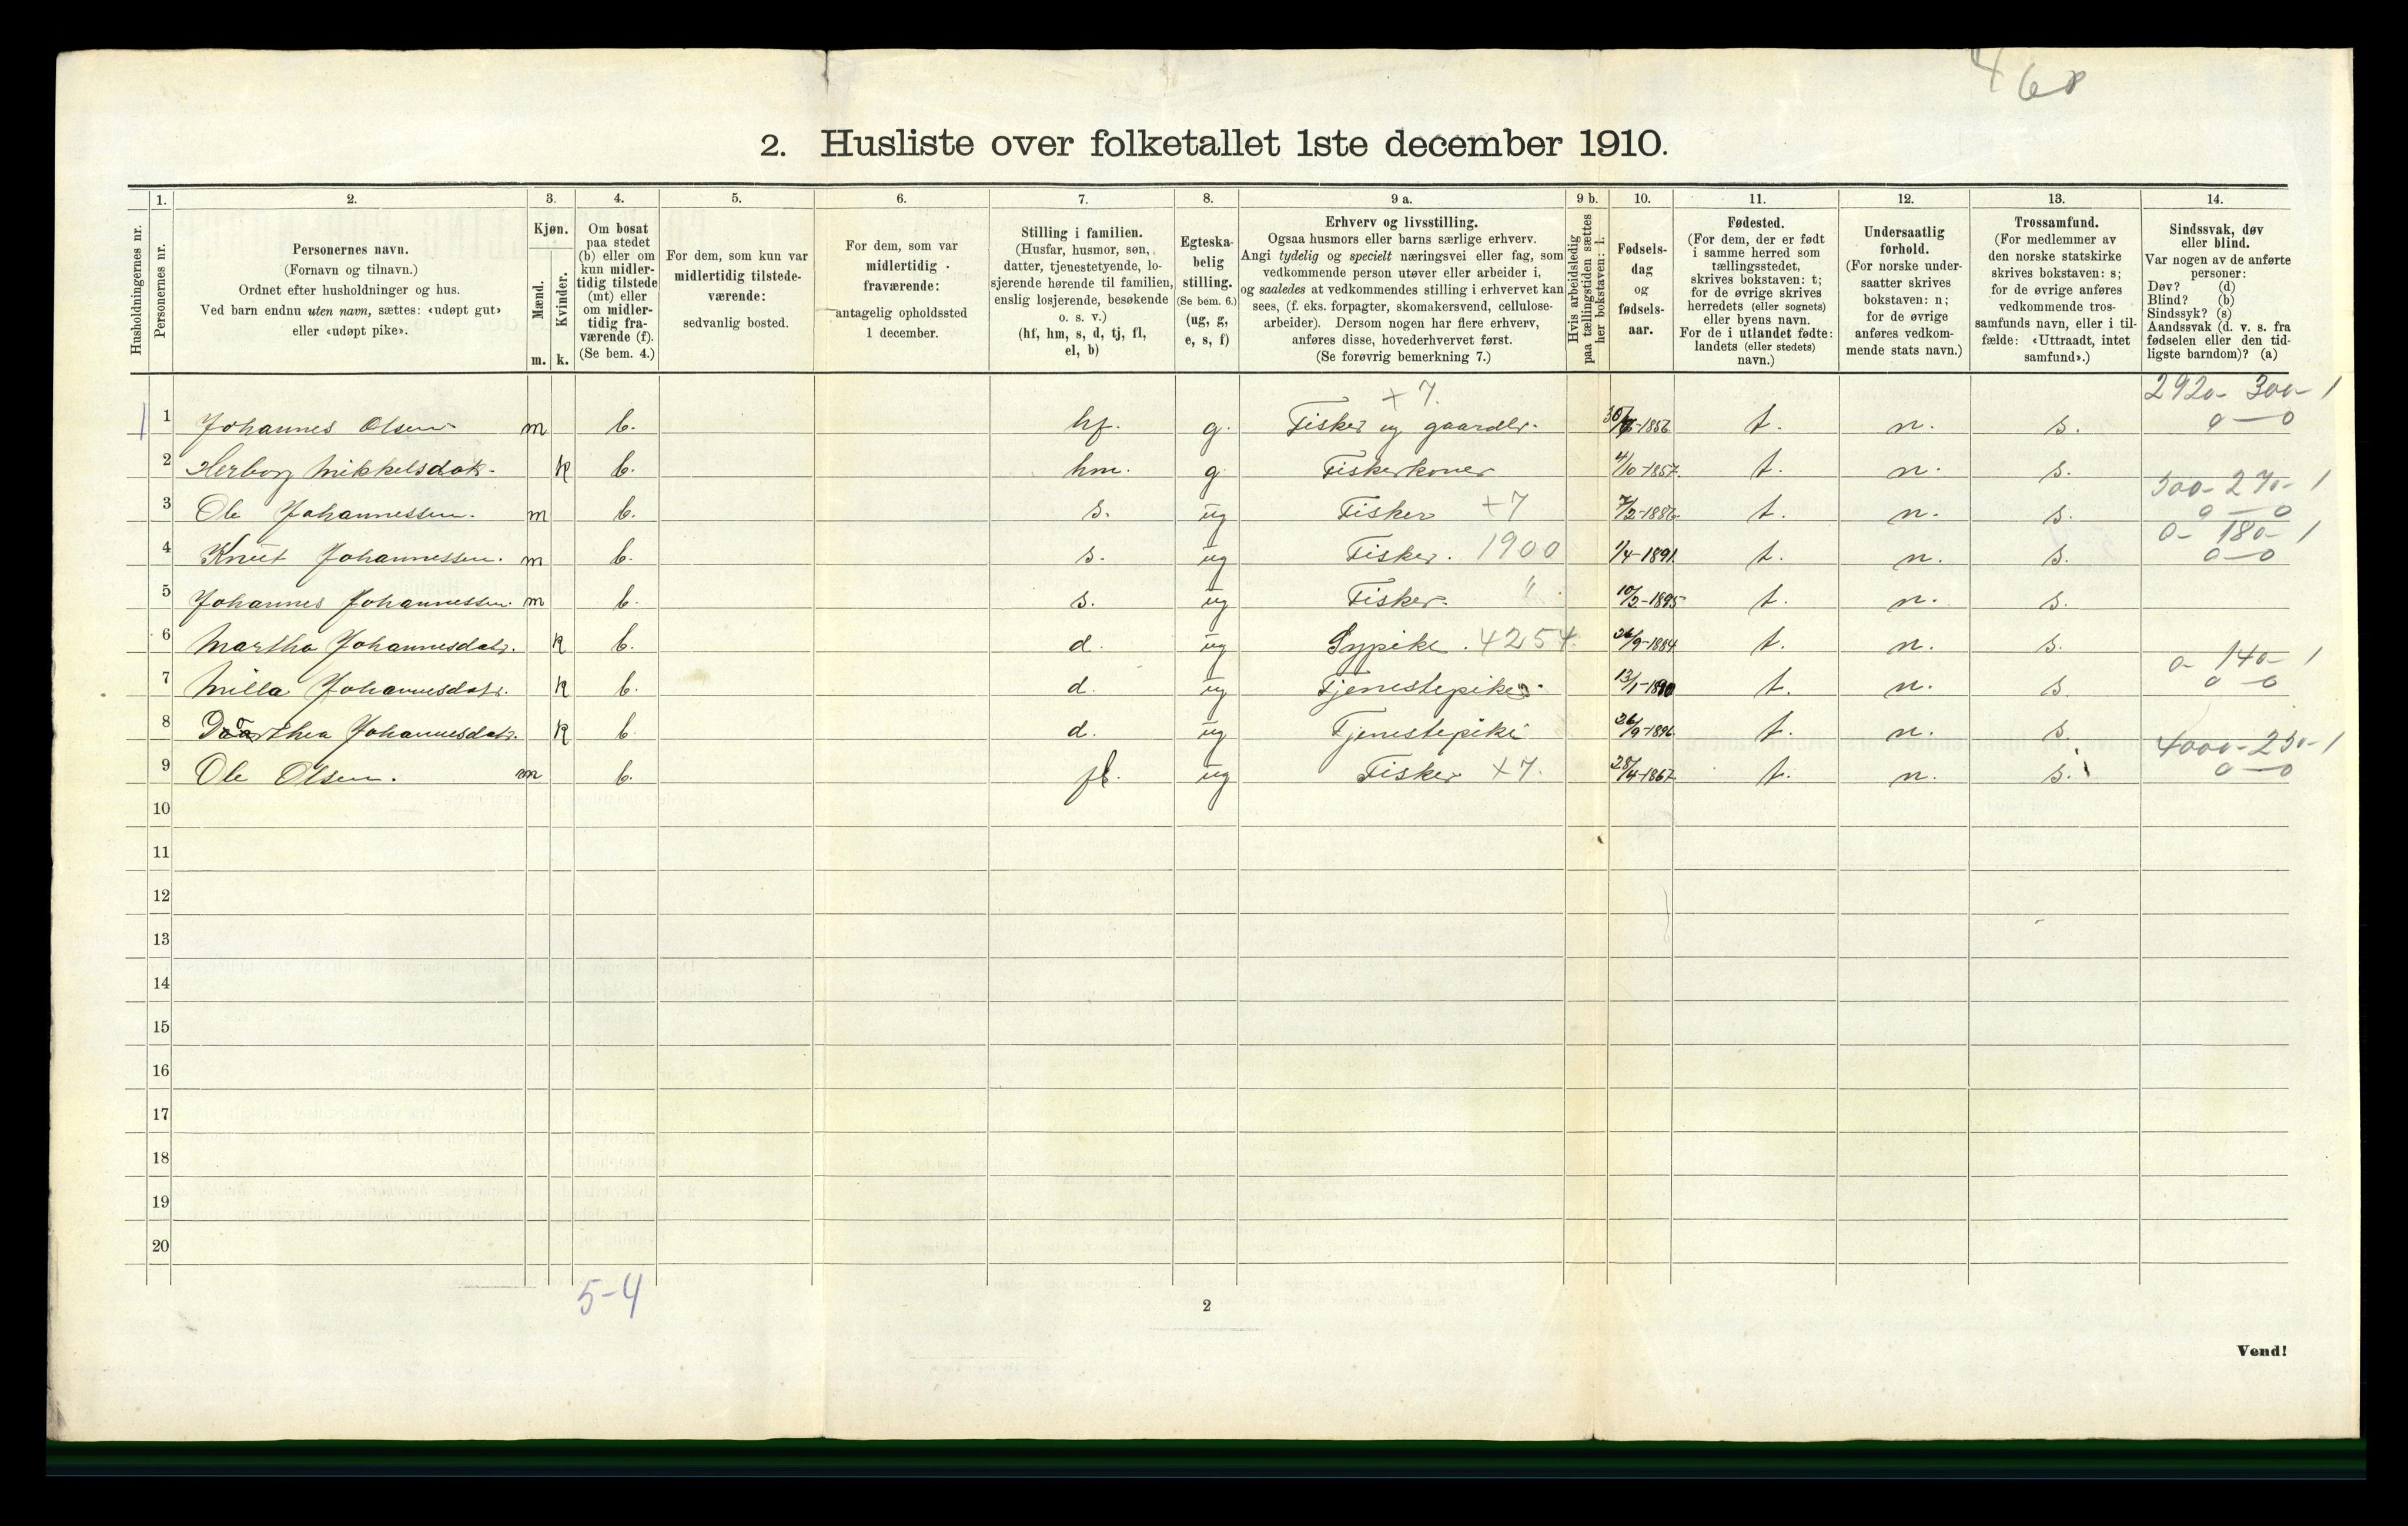 4 60
2. Husliste over folketallet 1ste december 1910.
1. 2. 3. 4. 5. 6. 7. 8. 9 a. 9 b. 10. 11. 12. 13. 14.
Husholdningernes nr.
Personernes nr.
Personernes navn.
(Fornavn og tilnavn.)
Ordnet efter husholdninger og hus.
Ved barn endnu uten navn, sættes: «udøpt gut»
eller «udøpt pike».
Kjøn.
Mænd.
Kvinder.
m. k.
Om bosat
paa stedet
(b) eller om
kun midler-
tidig tilstede
(mt) eller
om midler-
tidig fra-
værende (f).
(Se bem. 4.)
For dem, som kun var
midlertidig tilstede-
værende:
sedvanlig bosted.
For dem, som var
midlertidig
fraværende:
antagelig opholdssted
1 december.
Stilling i familien.
(Husfar, husmor, søn,
datter, tjenestetyende, lo-
sjerende hørende til familien,
enslig losjerende, besøkende
o. s. v.)
(hf, hm, s, d, tj, fl,
el, b)
Egteska-
belig
stilling.
(Se bem. 6.)
(ug, g,
e, s, f)
Erhverv og livsstilling.
Ogsaa husmors eller barns særlige erhverv.
Angi tydelig og specielt næringsvei eller fag, som
vedkommende person utøver eller arbeider i,
og saaledes at vedkommendes stilling i erhvervet kan
sees, (f. eks. forpagter, skomakersvend, cellulose-
arbeider). Dersom nogen har flere erhverv,
anføres disse, hovederhvervet først.
(Se forøvrig bemerkning 7.)
Hvis arbeidsledig
paa tællingstiden sættes
her bokstaven: l.
Fødsels-
dag
og
fødsels-
aar.
Fødested.
(For dem, der er født
i samme herred som
tællingsstedet,
skrives bokstaven: t;
for de øvrige skrives
herredets (eller sognets)
eller byens navn.
For de i utlandet fødte:
landets (eller stedets)
navn.)
Undersaatlig
forhold.
(For norske under-
saatter skrives
bokstaven: n;
for de øvrige
anføres vedkom-
mende stats navn.)
Trossamfund.
(For medlemmer av
den norske statskirke
skrives bokstaven: s;
for de øvrige anføres
vedkommende tros-
samfunds navn, eller i til-
fælde: «Uttraadt, intet
samfund».)
Sindssvak, døv
eller blind.
Var nogen av de anførte
personer:
Døv? (d)
Blind? (b)
Sindssyk? (s)
Aandssvak (d. v. s. fra
fødselen eller den tid-
ligste barndom)? (a)
+ 7. 2920- 300- 1
1 1 Johannes Olsen m b. hf. g. Fisker og gaardbr. -1856. t. n. s. 0-0
2 Herborg Mikkelsdatr. k b. hm. g. Fiskerkone 4/10-1857. t. n. s.
300- 270- 1
3 Ole Johannessen. m b. s. ug Fisker +7 7/2-1886. t. n. s. 0-0
0- 180- 1
4 Knut Johannessen. m b. s. ug Fisker. 1900 1/4-1891. t. n. s. 0-0
5 Johannes Johannessen. m b. s. ug Fisker. " 10/2-1895 t. n. s.
6 Martha Johannesdatr. k b. d. ug Sypike. 4254. 26/9-1884 t. n. s.
0- 140- 1
7 Milla Johannesdatr. k b. d. ug Tjenestepike. 13/1-1890 t. n. s. 0-0
8 Dorthea Johannesdatr. k b. d. ug Tjenestepike 26/9-1896. t. n. s.
4000- 250- 1
9 Ole Olsen. m b. fl. ug Fisker +7. 28/4-1867. t. n. s. 0-0
10
11
12
13
14
15
16
17
18
19
20
5-4
2
Vend!